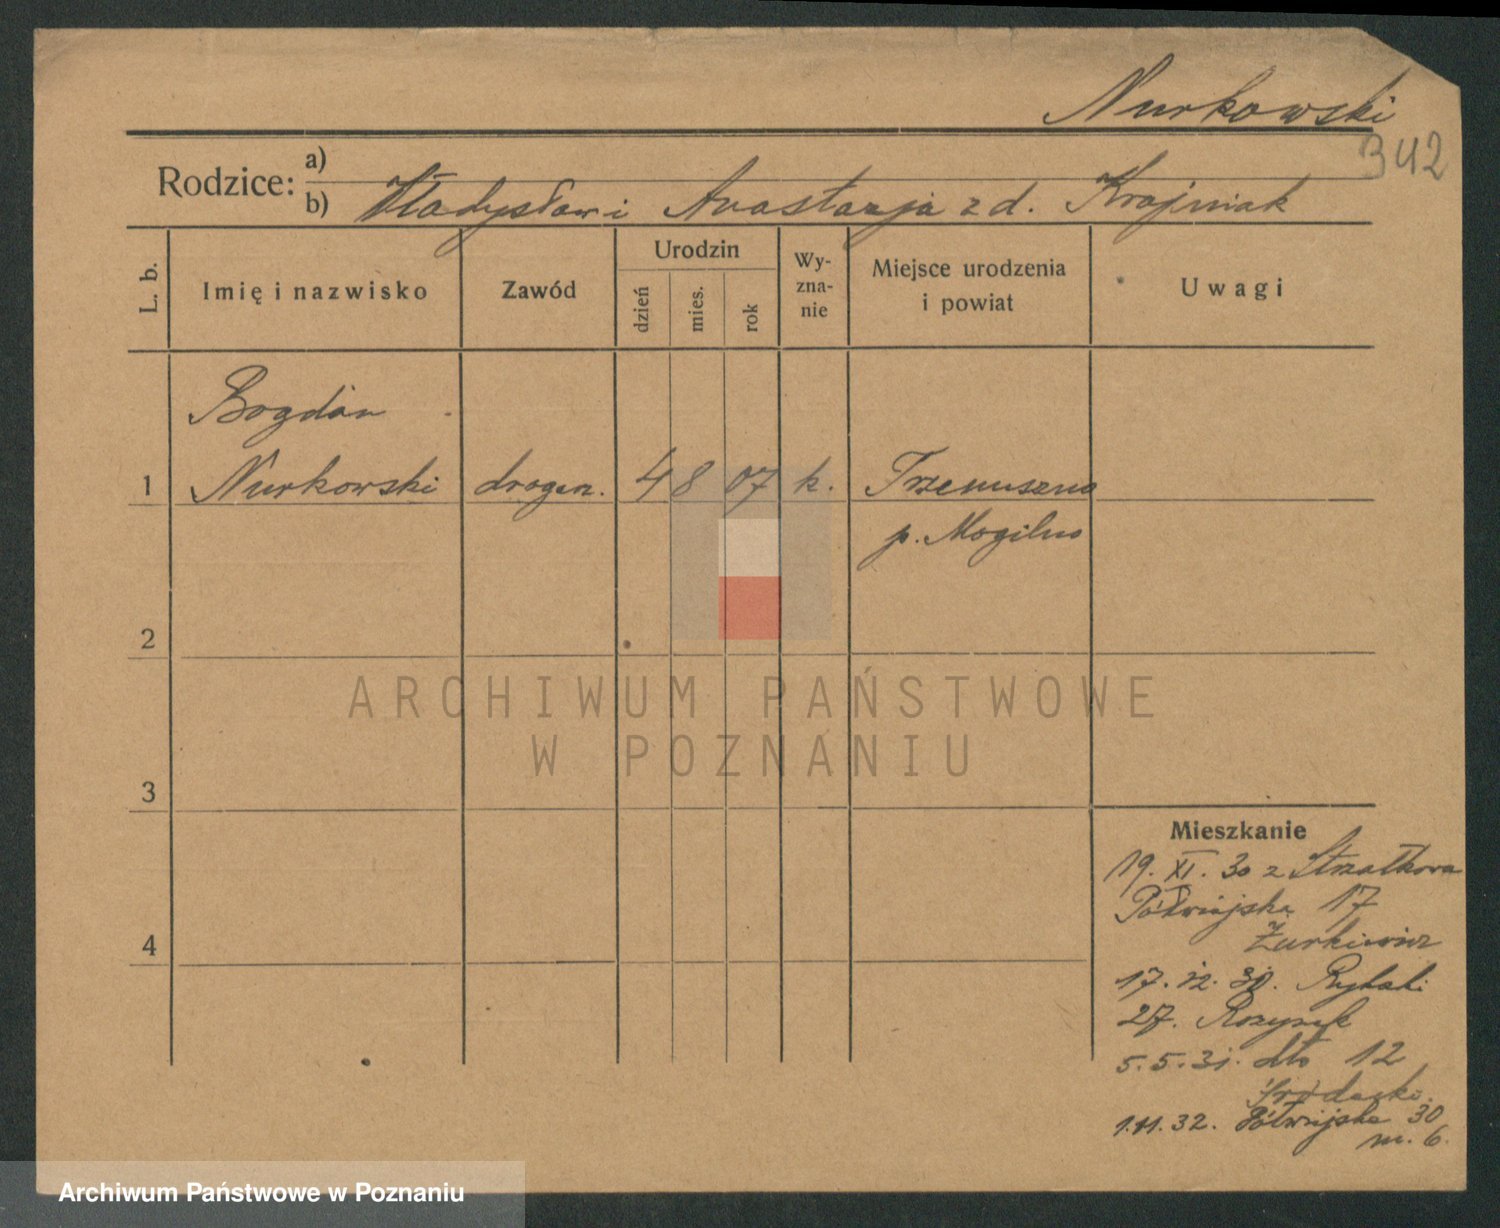 Nurkowski
342
Rodzice: a)
b) Władysław i Anastazja z d. Krajniak
L. b.
Imię i nazwisko
Zawód
Urodzin
dzień
mies.
rok
Wy-
zna-
nie
Miejsce urodzenia
i powiat
Uwagi
Bogdan
1 Nurkowski drogerz. 4 8 07 k. Trzemuszno
p. Mogilno
2
3
4
ARCHIWUM PAŃSTWOWE
W POZNANIU
Mieszkanie
19. XI. 30 z Strzałkowa
Półwiejska 17
Żurkiewicz
17. 12. 30. Rybaki
27.
5. 5. 31. dto 12
Grodecka.
1.11.32. Półwiejska 30
m. 6.
Archiwum Państwowe w Poznaniu